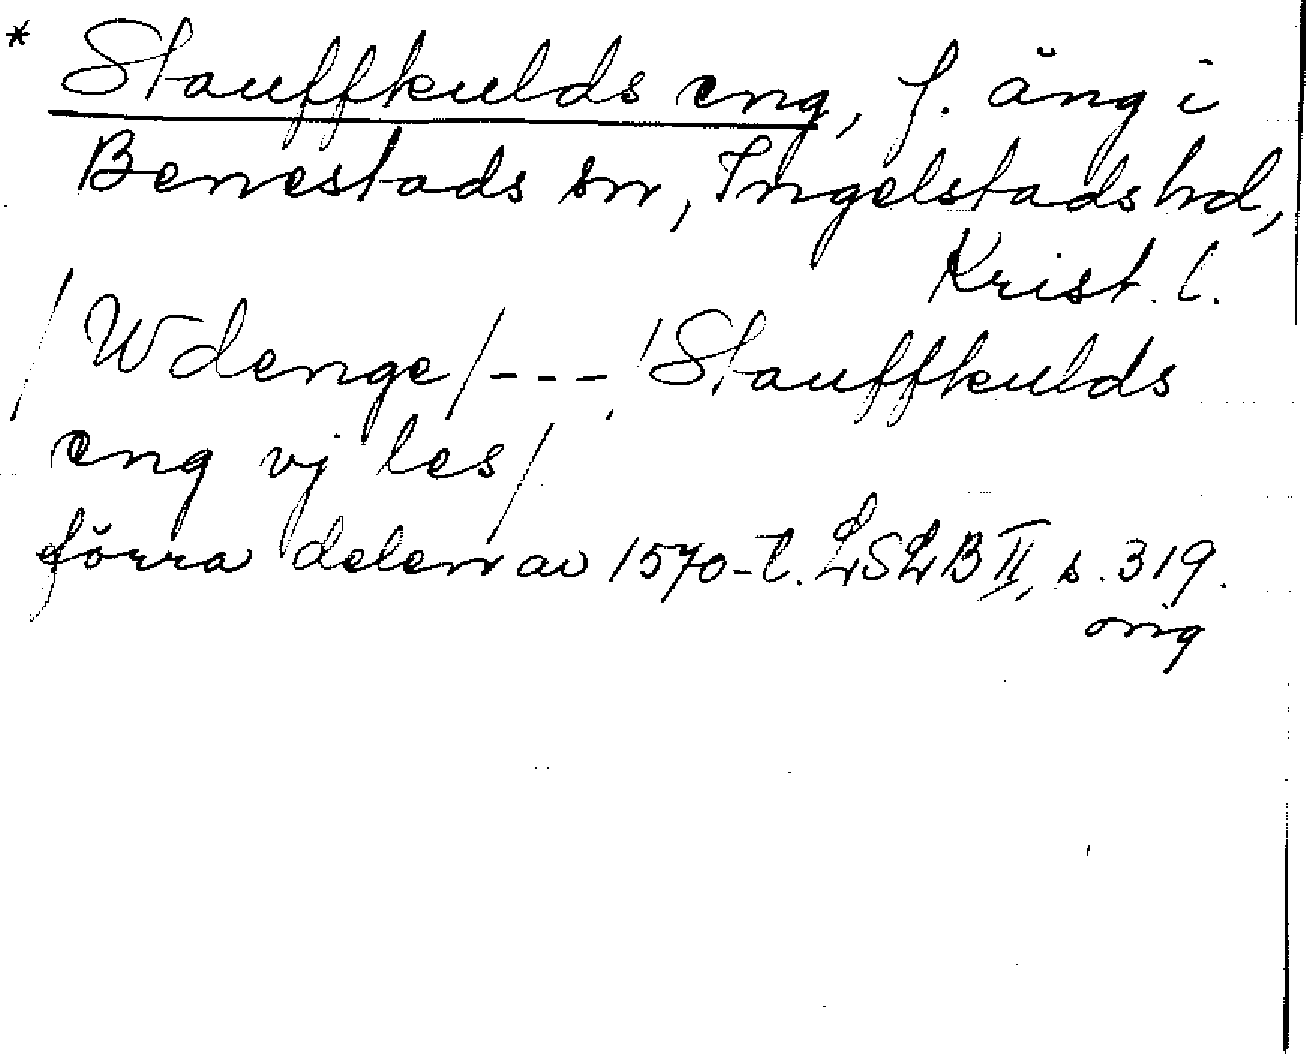 * Stauffkulds eng, f. äng i
Benestads sn, Ingelstads hd,
Krist. l.
/ Wdenge / - - - / Stauffkulds
eng vj les /
förra delen av 1570-t. LSLB II, s. 319.
orig